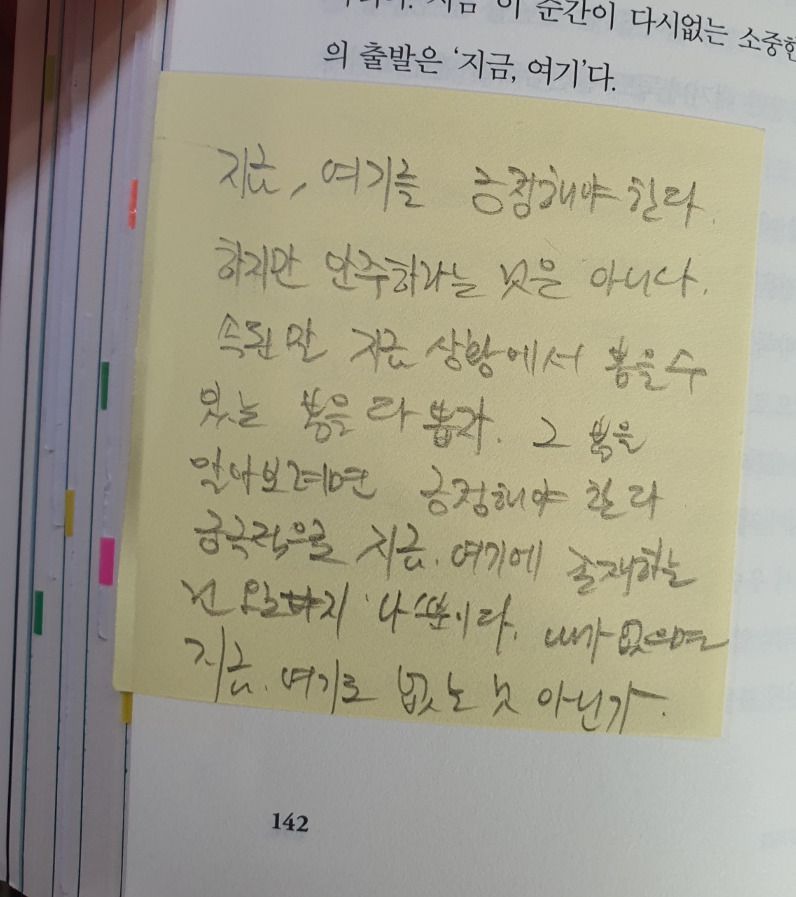 지금 이 순간이 다시없는 소중한
의 출발은 ‘지금, 여기’다.
지금, 여기를 긍정해야 한다.
하지만 안주하라는 것은 아니다.
속된 말 지금 상황에서 뽑을 수
있는 뽕을 다 뽑자. 그 뽕을
알아보려면 긍정해야 한다
궁극적으로 지금. 여기에 존재하는
건 오로지 나 뿐이다. 내가 없으면
지금. 여기도 없는 것 아닌가.
142